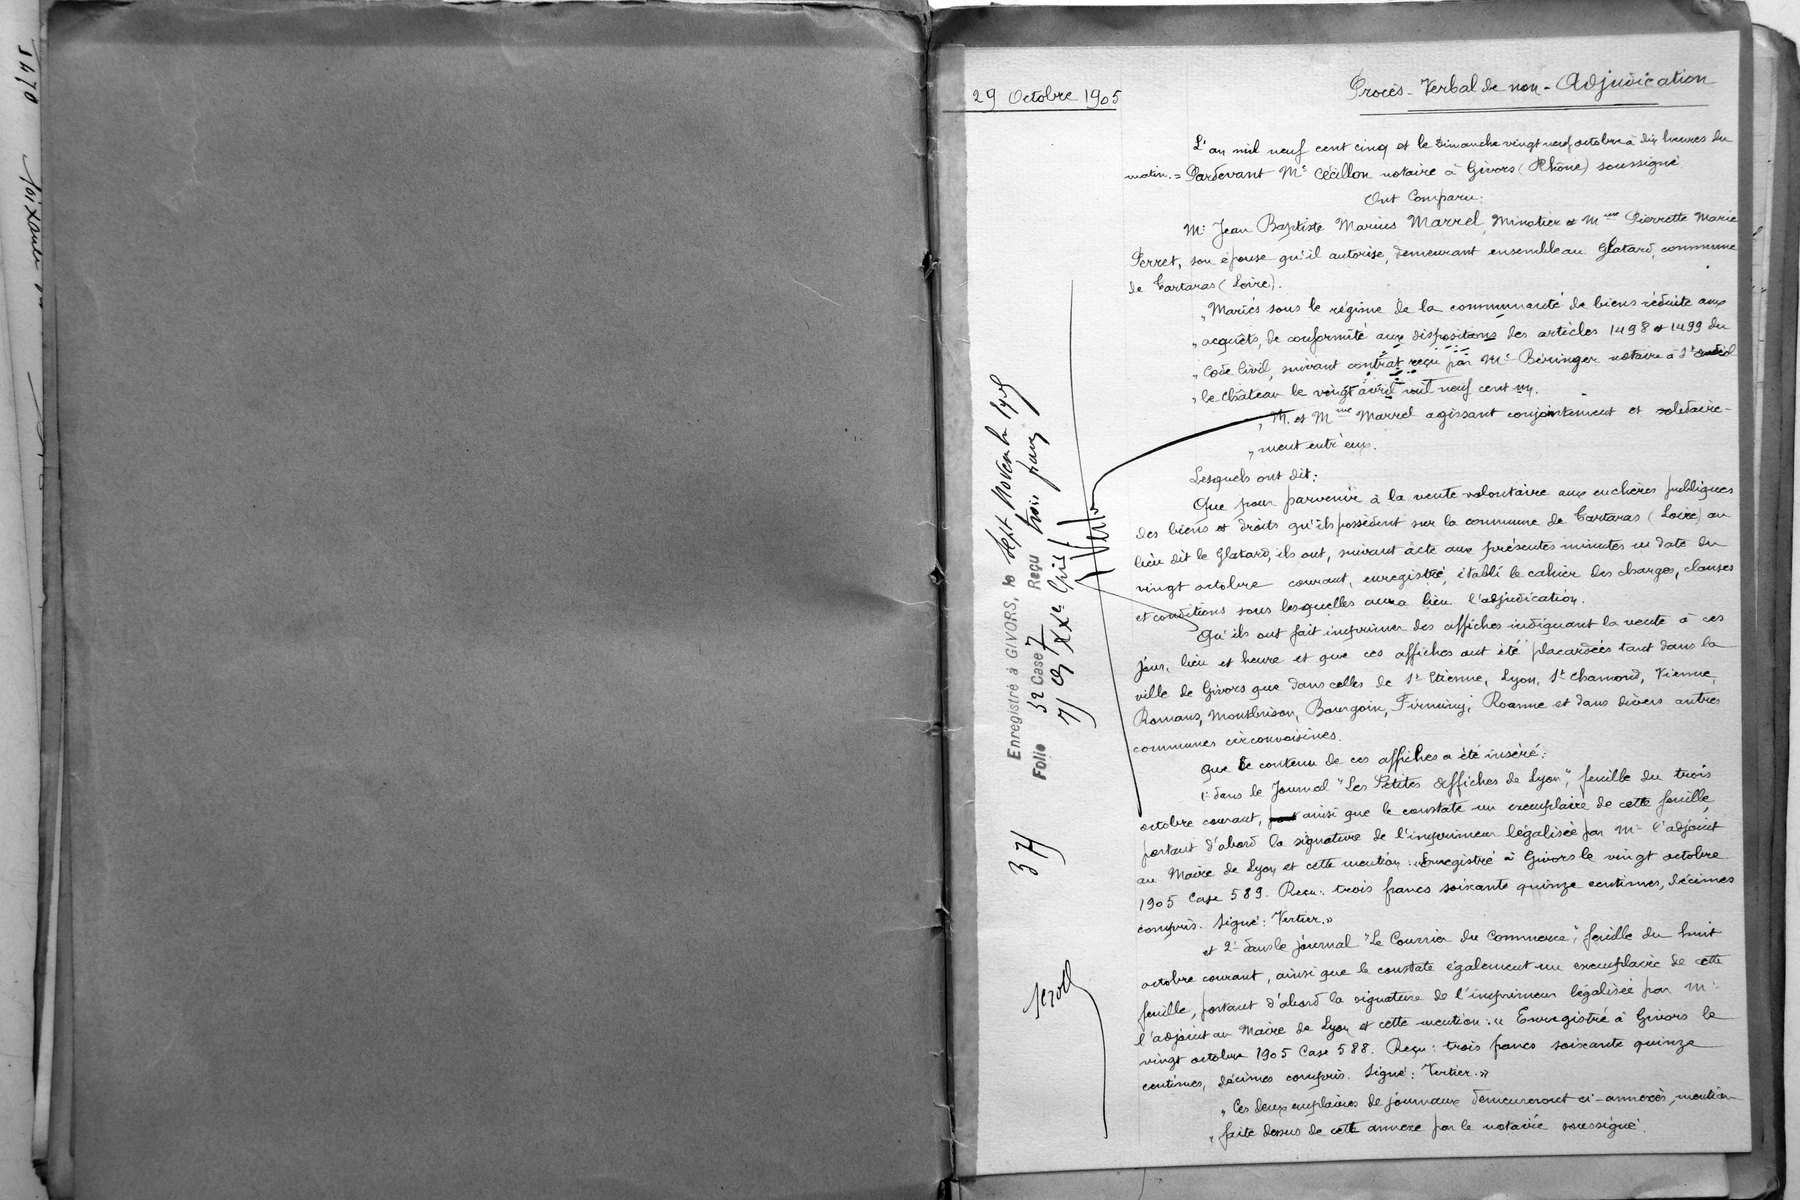 29 Octobre 1905
Procès-Verbal de non-Adjudication
L'an mil neuf cent cinq et le Dimanche vingt neuf octobre à dix heures du
matin. = Pardevant Me Cécillon notaire à Givors (Rhône) soussigné
Ont Comparu:
Mr Jean Baptiste Marius Marrel, Minotier et Mme Pierrette Marie
Perret, son épouse qu'il autorise, demeurant ensemble au Glatard, commune
de Tartaras (Loire).
" Mariés sous le régime de la communauté de biens réduite aux
" acquêts, de conformité aux dispositions des articles 1498 et 1499 du
" Code Civil, suivant contrat reçu par Me Béringer notaire à St
" le château le vingt avril mil neuf cent un.
" M. et Mme Marrel agissant conjointement et solidaire-
" ment entr'eux.
Lesquels ont dit:
Que pour parvenir à la vente volontaire aux enchères publiques
des biens et droits qu'ils possèdent sur la commune de Tartaras (Loire) au
lieu dit le Glatard, ils ont, suivant acte aux présentes minutes en date du
vingt octobre courant, enregistré, établi le cahier des charges, clauses
et conditions sous lesquelles aura lieu l'adjudication.
Qu'ils ont fait imprimer des affiches indiquant la vente à ces
jour, lieu et heure et que ces affiches ont été placardées tant dans la
ville de Givors que dans celles de St Etienne, Lyon, St Chamond, Vienne,
Romans, Montbrison, Bourgoin, Firminy, Roanne et dans divers autres
communes circonvoisines.
Que le contenu de ces affiches a été inséré:
1º dans le Journal "Les Petites Affiches de Lyon", feuille du trois
octobre courant, ainsi que le constate un exemplaire de cette feuille,
portant d'abord la signature de l'imprimeur légalisée par Mr l'adjoint
au Maire de Lyon et cette mention: "Enregistré à Givors le vingt octobre
1905 Case 589. Reçu: trois francs soixante quinze centimes, décimes
compris. Signé: Vertier."
et 2º dans le journal "Le Courrier du Commerce", feuille du huit
octobre courant, ainsi que le constate également un exemplaire de cette
feuille, portant d'abord la signature de l'imprimeur légalisée par Mr
l'adjoint au Maire de Lyon et cette mention: "Enregistré à Givors le
vingt octobre 1905 Case 588. Reçu: trois francs soixante quinze
centimes, décimes compris. Signé: Vertier."
" Ces deux emplaires de journaux demeureront ci-annexés, mention
" faite dessus de cette annexe par le notaire soussigné.
Enregistré à GIVORS, le sept Novembre 1905
Folio 32 Case 7 Reçu trois francs